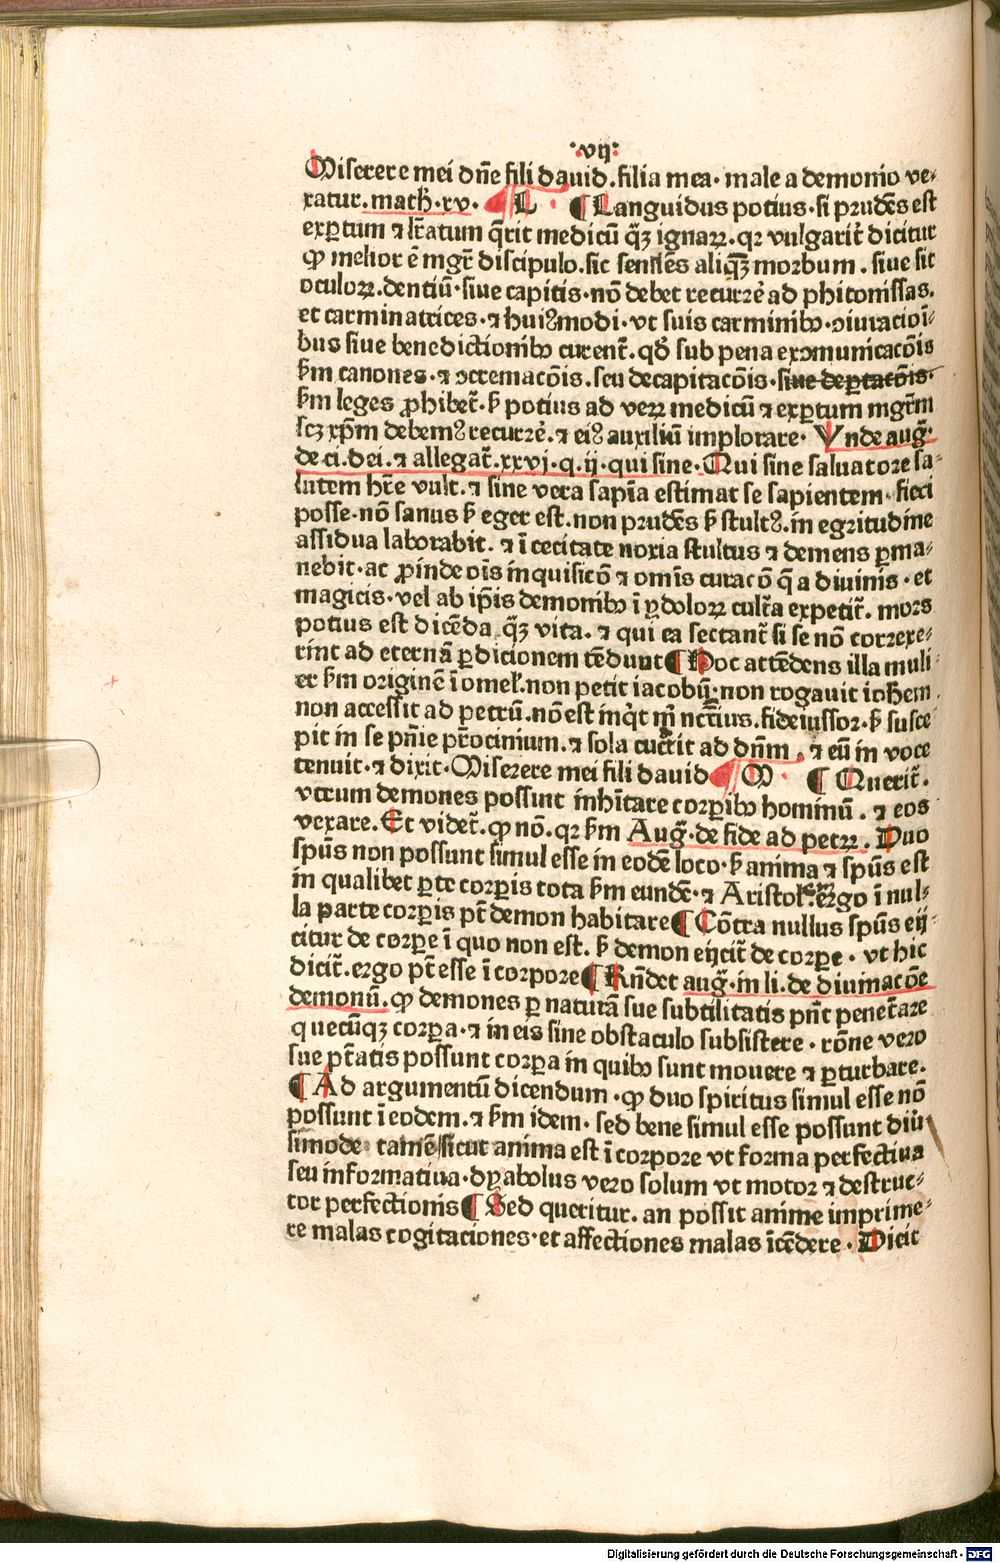 ·vij·
Miserere mei dñe fili dauid. filia mea· male a demonio ve⸗
xatur. math̃·xv· L · ¶ Languidus potius· si prudẽs est
expertum ⁊ lr̃atum q̃rit medicũ q̃ꝫ ignaꝝ. qꝛ vulgarit᷑ dicitur
ꝙ melior ẽ mgr̃ discipulo. sic sentiẽs aliq̃ꝫ morbum. siue sit
oculoꝝ. dentiũ· siue capitis· nõ debet recurrẽ ad phitonissas.
et carminatrices· ⁊ huiꝰmodi· vt suis carminibꝫ· ꝯiuracioĩ⸗
bus siue benedictionibꝫ curent᷑. qđ sub pena exꝯmunicacõis
ẜm canones· ⁊ ꝯcremacõis. seu decapitacõis· siue deptacõis·
ẜm leges ꝓhibet᷑. ẜ potius ad veꝝ medicũ ⁊ expertum mgr̃m
scꝫ xp̃m debemꝰ recurrẽ. ⁊ eiꝰ auxiliũ implorare· Vnde aug̃·
de ci. dei. ⁊ allegat᷑. xxvj. q. ij. qui sine· Qui sine saluatore sa⸗
lutem hr̃e vult. ⁊ sine vera sapĩa estimat se sapientem· fieri
posse· nõ sanus ẜ eger est. non prudẽs ẜ stultꝰ. in egritudine
assidua laborabit. ⁊ ĩ cecitate noxia stultus ⁊ demens ꝑma⸗
nebit· ac ꝓinde oĩs inquisicõ ⁊ omĩs curacõ q̃ a diuinis· et
magicis· vel ab ip̃is demonibꝫ ĩ ydoloꝝ cultr̃a expetit᷑. mors
potius est dicẽda q̃ꝫ vita. ⁊ qui ea sectant᷑ si se nõ correxe⸗
rint ad eternã ꝑdicionem tẽdunt ¶ Hoc attẽdens illa muli
er ẜm originẽ ĩ omel̃. non petit iacobũ· non rogauit ioh̃em.
non accessit ad petrũ. nõ est inq̇t mͥ nc̃cius. fideiussor. ẜ susce
pit in se pñie pr̃ocinium. ⁊ sola cucr̃it ad dñm. ⁊ eũ in voce
tenuit· ⁊ dixit· Miserere mei fili dauid M · ¶ Querit᷑.
vtrum demones possunt inhĩtare corꝑibꝫ hominũ. ⁊ eos
vexare. Et videt᷑. ꝙ nõ. qꝛ ẜm Aug̃· de fide ad petꝝ. Duo
spũs non possunt simul esse in eodẽ loco· ẜ anima ⁊ spũs est
in qualibet ꝑte corꝑis tota ẜm eundẽ· ⁊ Aristol̃em ergo ĩ nul⸗
la parte corꝑis pt̃ demon habitare ¶ Cõtra nullus spũs eij⸗
citur de corꝑe ĩ quo non est. ẜ demon eijcit᷑ de corꝑe· vt hic
dicit᷑. ergo pt̃ esse ĩ corpore ¶ Rñdet aug̃· in li. de diuinacõe
demonũ. ꝙ demones ꝑ naturã sue subtilitatis pñt penet᷑are
quecũqꝫ corꝑa· ⁊ in eis sine obstaculo subsistere. rõne vero
sue pt̃atis possunt corꝑa in quibꝫ sunt mouere ⁊ ꝑturbare.
¶ Ad argumentũ dicendum· ꝙ duo spiritus simul esse nõ
possunt ĩ eodem. ⁊ ẜm idem. sed bene simul esse possunt diũ
simode tamẽ sicut anima est ĩ corpore vt forma perfectiua
seu informatiua· dyabolus vero solum vt motor ⁊ destruc⸗
tor perfectionis ¶ Sed queritur. an possit anime imprime⸗
re malas cogitaciones· et affectiones malas ĩcẽdere· Dicit
Digitalisierung gefördert durch die Deutsche Forschungsgemeinschaft - DFG